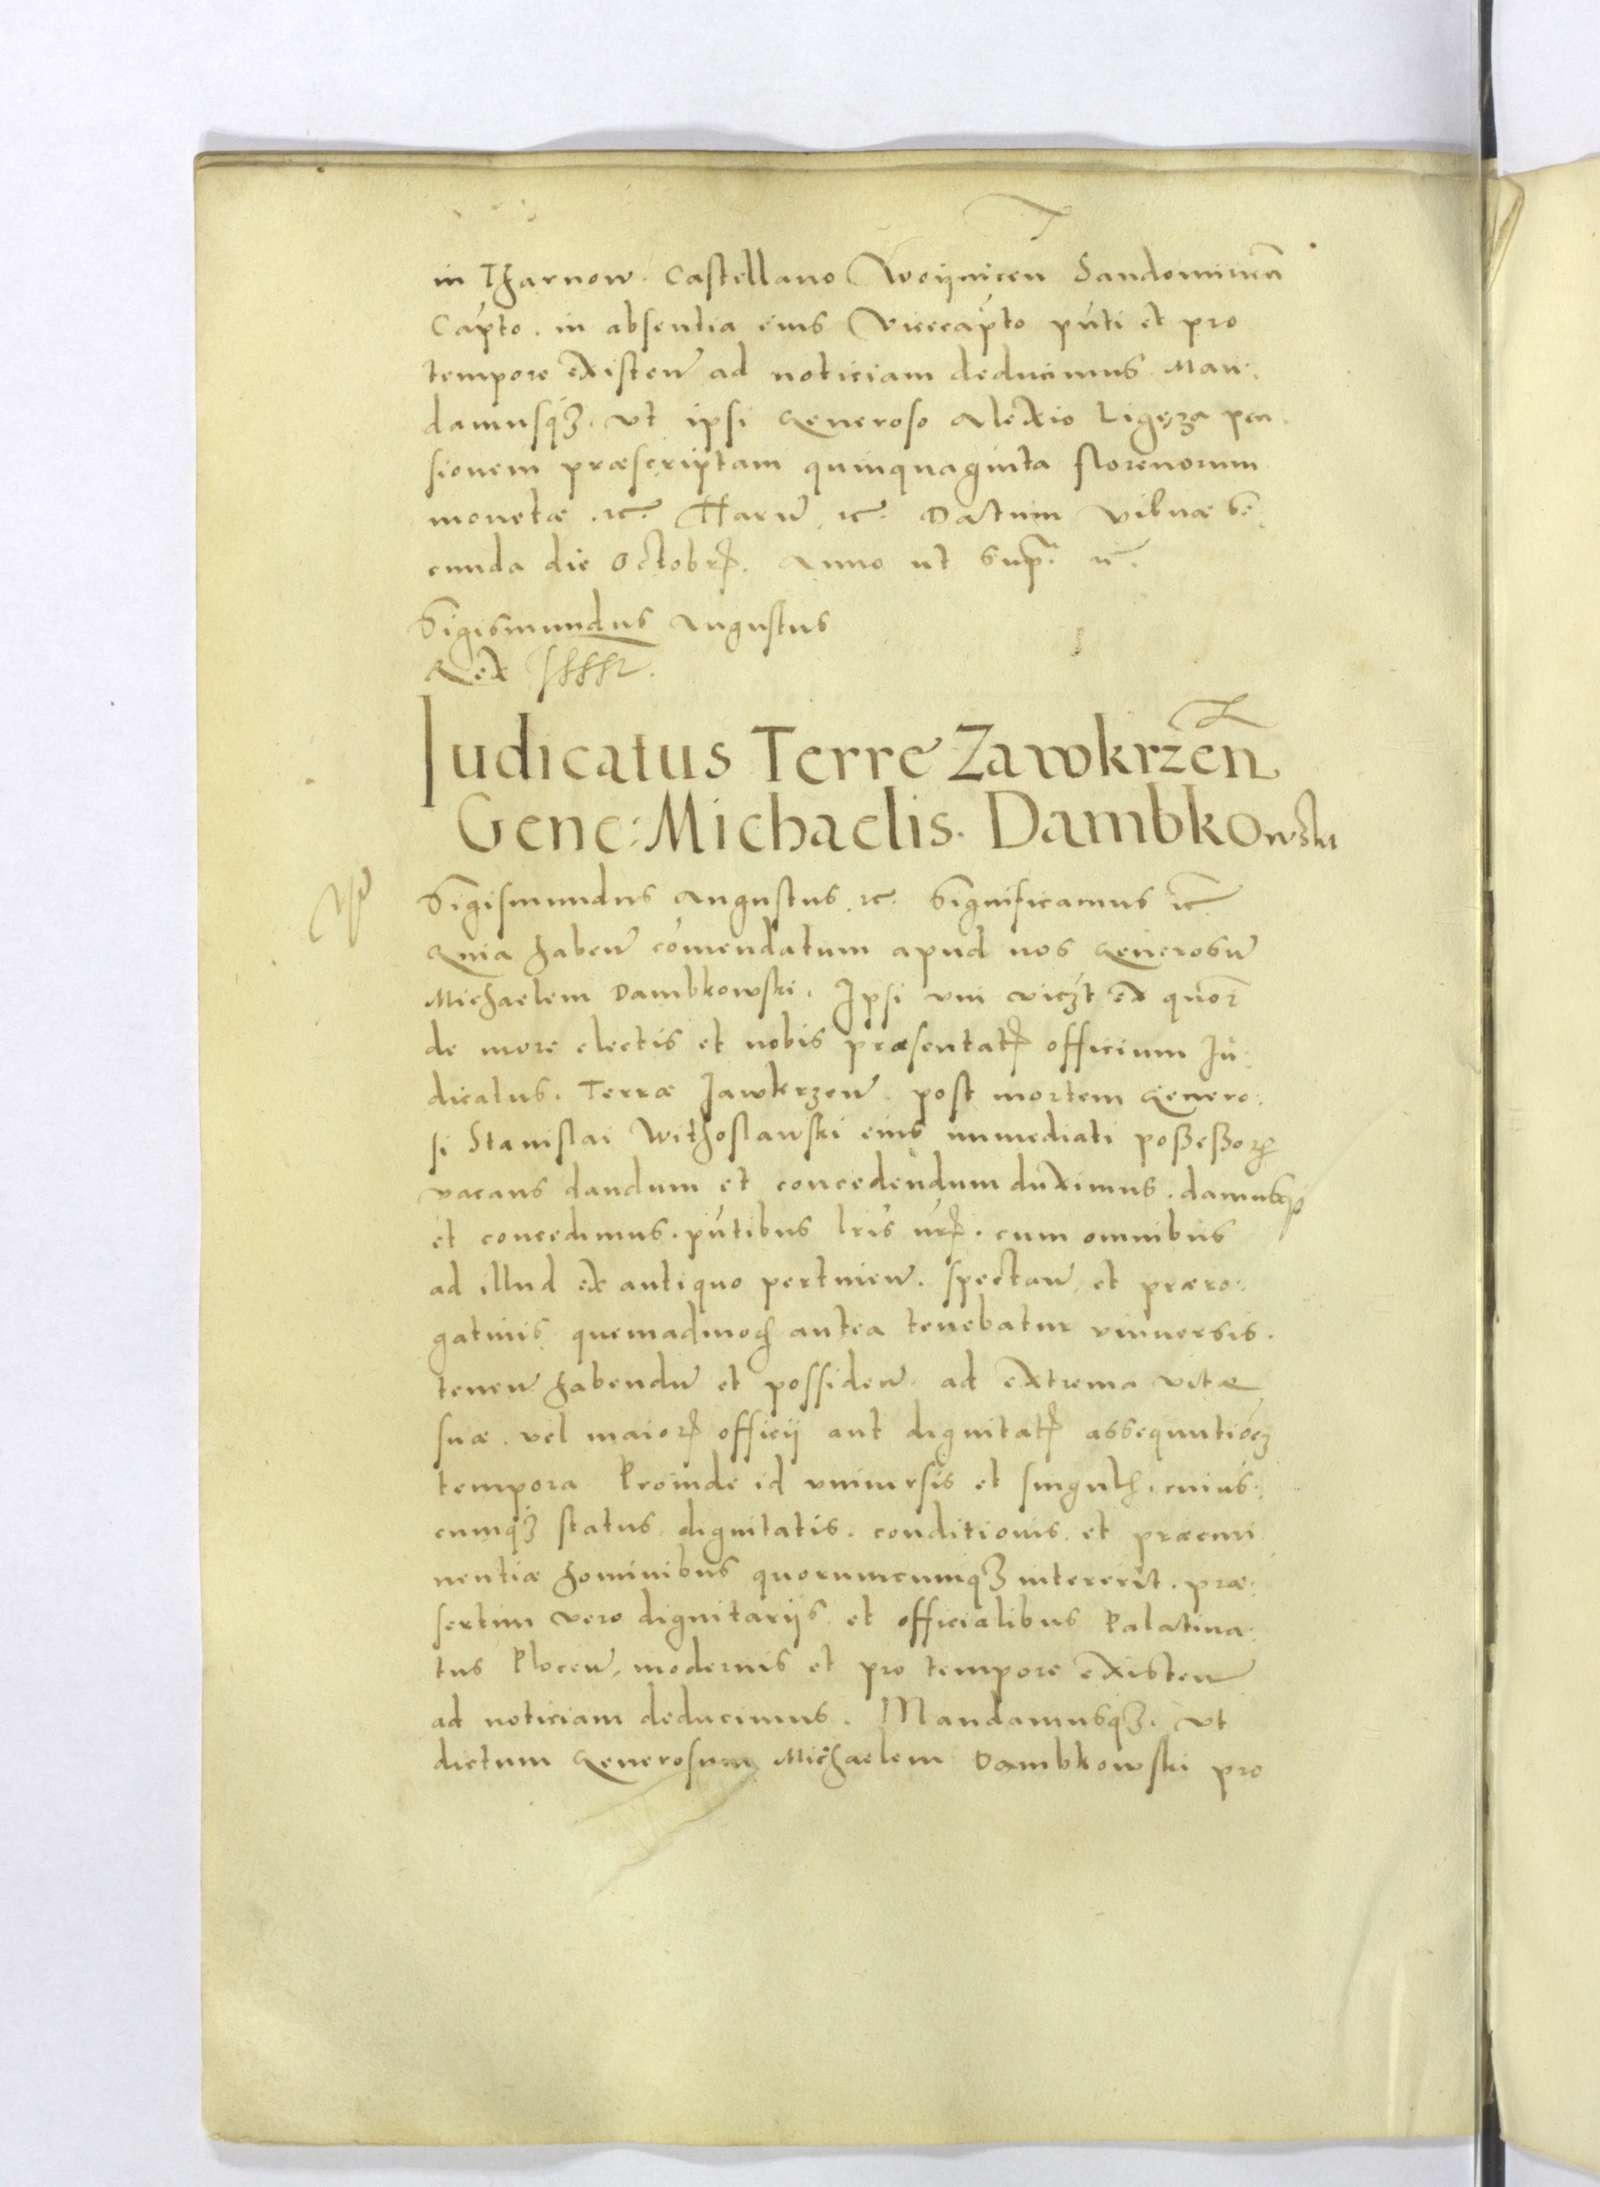 in Tharnow. Castellano Woynicen Sandomirien
Capto. in absentia eius Vicecapto pnti et pro
tempore existen ad noticiam deducimus Man:
damusq3. ut ipsi Generoso Alexio Ligęza pen
sionem præscriptam quinquaginta florenorum
monetæ. etc. Harum etc. Datum Vilnæ Se
cunda die Octobris. Anno ut supra. etc.
Sigismundus Augustus
Rex
Iudicatus Terre Zawkrzen
Gene: Michaelis. Dambkowski
Sigismundus Augustus. etc. Significamus etc
Quia haben comendatum apud nos Generosum
Michaelem Dambkowski. Ipsi uni viczt ex quor
de more electis et nobis præsentatis officium Iu:
dicatus. Terræ Zawkrzen. post mortem Genero:
si Stanislai Withoslawski eius immediati poßeßoris
vacans dandum et concedendum duximus. damusq3
et concedimus. pntibus lris nris. cum omnibus
ad illud ex antiquo pertinen. spectan. et præro:
gatiuis quemadmod antea tenebatur vniuersis.
tenen habendum et possiden. ad extrema vitæ
suæ. vel maioris officij aut dignitatis assequutiones
tempora Proinde id vniuersis et singulis. cuius:
cumq3 status dignitatis. conditionis. et præemi
nentiæ hominibus quorumcumq3 intererit. præ:
sertim vero dignitarijs et officialibus Palatina:
tus Plocen. modernis et pro tempore existen
ad noticiam deducimus. Mandamusq3. ut
dictum Generosum Michaelem Dambkowski pro